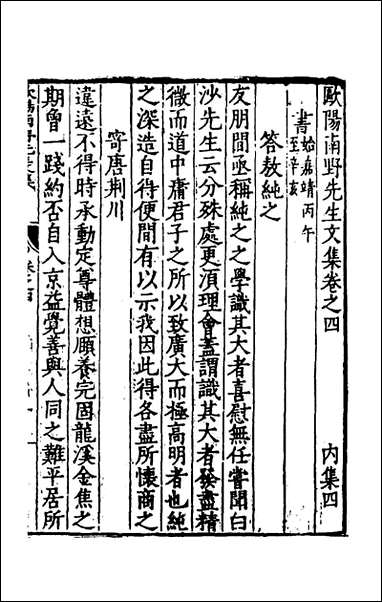 歐陽南野先生文集卷之四　內集四
書始嘉靖丙午
至辛亥
答敖純之
友朋間亟稱純之之學識其大者喜慰無任嘗聞白
沙先生云分殊處更須理會蓋謂識其大者發盡精
微而道中庸君子之所以致廣大而極高明者也純
之深造自得便間有以示我因此得各盡所懷商之
寄唐荊川
違遠不得時承動定尊體想頤養完固龍溪金焦之
期曾一踐約否自入京益覺善與人同之難平居所